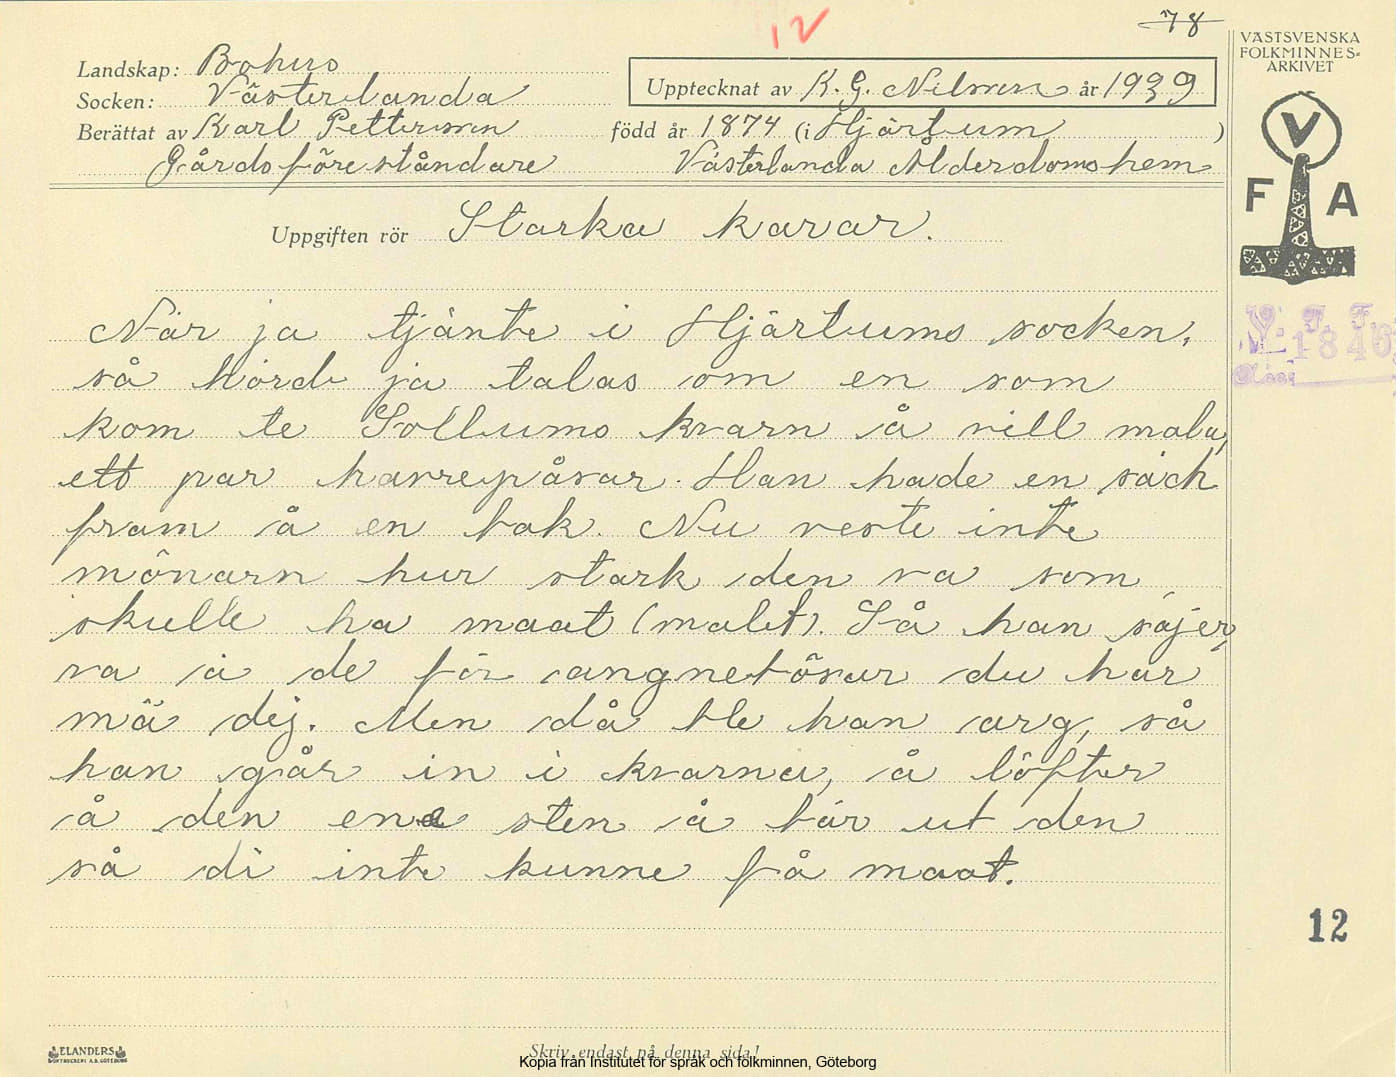 12
78
VÄSTSVENSKA
FOLKMINNES=
ARKIVET
Landskap: Bohus
Socken: Västerlanda
Upptecknat av K. G. Nilsson år 1939
Berättat av Karl Pettersson född år 1874 (i Hjärtum )
Gårdsföreståndare Västerlanda Ålderdomshem
V
F A
Uppgiften rör Starka karar.
V. F. F.
1846
När ja tjänte i Hjärtums socken,
så hörde ja talas om en som
kom te Sollums kvarn å vill mala,
ett par havrepåsar. Han hade en säck
fram å en bak. Nu veste inte
mönarn hur stark den va som
skulle ha maat (malet). Så han säjer,
va ä de för angnetösar du har
mä dej. Men då ble han arg, så
han går in i kvarna, å löfter
å den ene sten å bär ut den
så di inte kunne få maat.
12
ELANDERS
BOKTRYCKERI A.B. GÖTEBORG
Skriv endast på denna sida!
Kopia från Institutet för språk och folkminnen, Göteborg